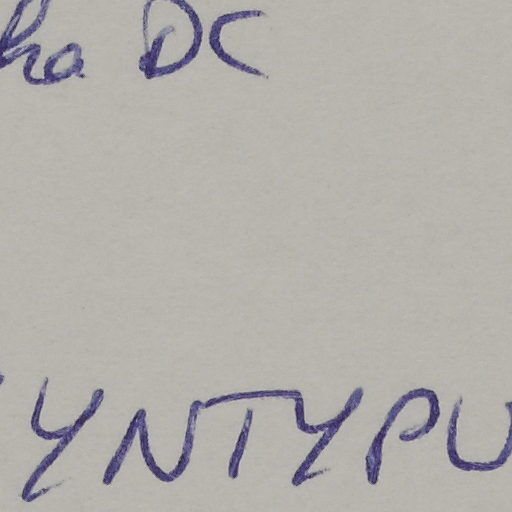 ha DC
YNTYPU